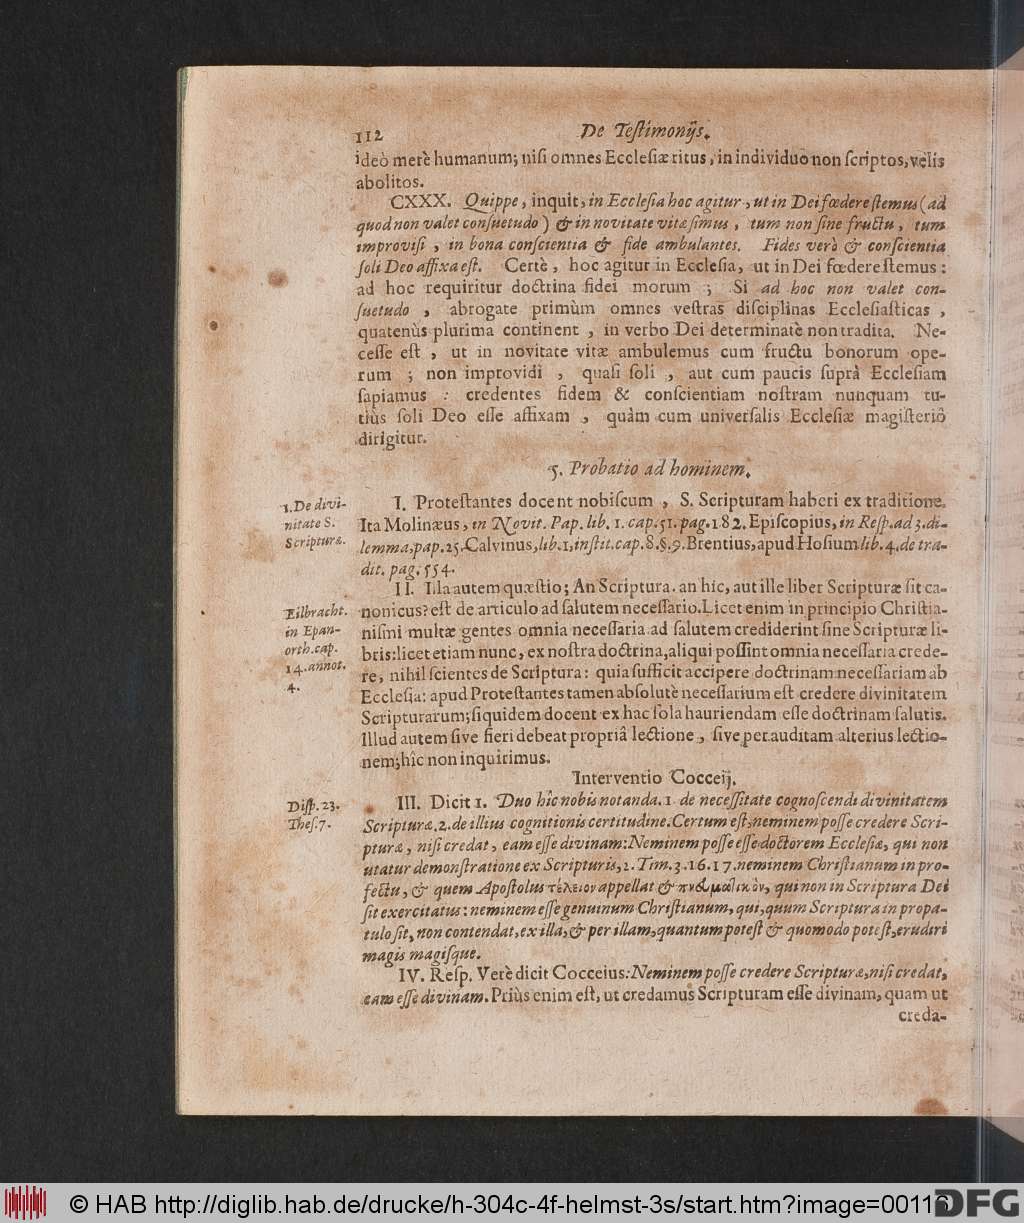 112
De Teſtimonijs.
ideò merè humanum; niſi omnes Eccleſiæ ritus, in individuo non ſcriptos, velis
abolitos.
CXXX. Quippe, inquit, in Eccleſia hoc agitur, ut in Dei fœdere ſtemus (ad
quod non valet conſuetudo) & in novitate vitæ ſimus, tum non ſine fructu, tum
improviſi, in bona conſcientia & fide ambulantes. Fides verò & conſcientia
ſoli Deo affixa eſt. Certè, hoc agitur in Eccleſia, ut in Dei fœdere ſtemus:
ad hoc requiritur doctrina fidei morum; Si ad hoc non valet con-
ſuetudo, abrogate primùm omnes veſtras diſciplinas Eccleſiaſticas,
quatenùs plurima continent, in verbo Dei determinatè non tradita. Ne-
ceſſe eſt, ut in novitate vitæ ambulemus cum fructu bonorum ope-
rum; non improvidi, quaſi ſoli, aut cum paucis ſuprà Eccleſiam
ſapiamus: credentes fidem & conſcientiam noſtram nunquam tu-
tiùs ſoli Deo eſſe affixam, quàm cum univerſalis Eccleſiæ magiſteriô
dirigitur.
5. Probatio ad hominem.
1. De divi-
nitate S.
Scripturæ.
I. Proteſtantes docent nobiſcum, S. Scripturam haberi ex traditione.
Ita Molinæus, in Novit. Pap. lib. 1. cap. 51. pag. 182. Epiſcopius, in Reſp. ad 3. di-
lemma, pap. 25. Calvinus, lib. 1, inſtit. cap. 8. §. 9. Brentius, apud Hoſium lib. 4. de tra-
dit. pag. 554.
Eilbracht.
in Epan-
orth. cap.
14. annot.
4.
II. Illa autem quæſtio; An Scriptura. an hic, aut ille liber Scripturæ ſit ca-
nonicus? eſt de articulo ad ſalutem neceſſario. Licet enim in principio Chriſtia-
niſmi multæ gentes omnia neceſſaria ad ſalutem crediderint ſine Scripturæ li-
bris: licet etiam nunc, ex noſtra doctrina, aliqui poſſint omnia neceſſaria crede-
re, nihil ſcientes de Scriptura: quia ſufficit accipere doctrinam neceſſariam ab
Eccleſia: apud Proteſtantes tamen abſolutè neceſſarium eſt credere divinitatem
Scripturarum; ſiquidem docent ex hac ſola hauriendam eſſe doctrinam ſalutis.
Illud autem ſive fieri debeat propriâ lectione, ſive per auditam alterius lectio-
nem; hîc non inquirimus.
Interventio Cocceij.
Diſp. 23.
Theſ. 7.
III. Dicit 1. Duo hîc nobis notanda. 1. de neceſſitate cognoſcendi divinitatem
Scripturæ. 2. de illius cognitionis certitudine. Certum eſt, neminem poſſe credere Scri-
pturæ, niſi credat, eam eſſe divinam: Neminem poſſe eſſe doctorem Eccleſiæ, qui non
utatur demonſtratione ex Scripturis, 2. Tim. 3. 16. 17. neminem Chriſtianum in pro-
fectu, & quem Apoſtolus τέλειον appellat & πνευματικὸν, qui non in Scriptura Dei
ſit exercitatus: neminem eſſe genuinum Chriſtianum, qui, quum Scriptura in propa-
tulo ſit, non contendat, ex illa, & per illam, quantum poteſt & quomodo poteſt, erudiri
magis magiſque.
IV. Reſp. Verè dicit Cocceius: Neminem poſſe credere Scripturæ, niſi credat,
eam eſſe divinam. Priùs enim eſt, ut credamus Scripturam eſſe divinam, quam ut
creda-
© HAB http://diglib.hab.de/drucke/h-304c-4f-helmst-3s/start.htm?image=00116
DFG